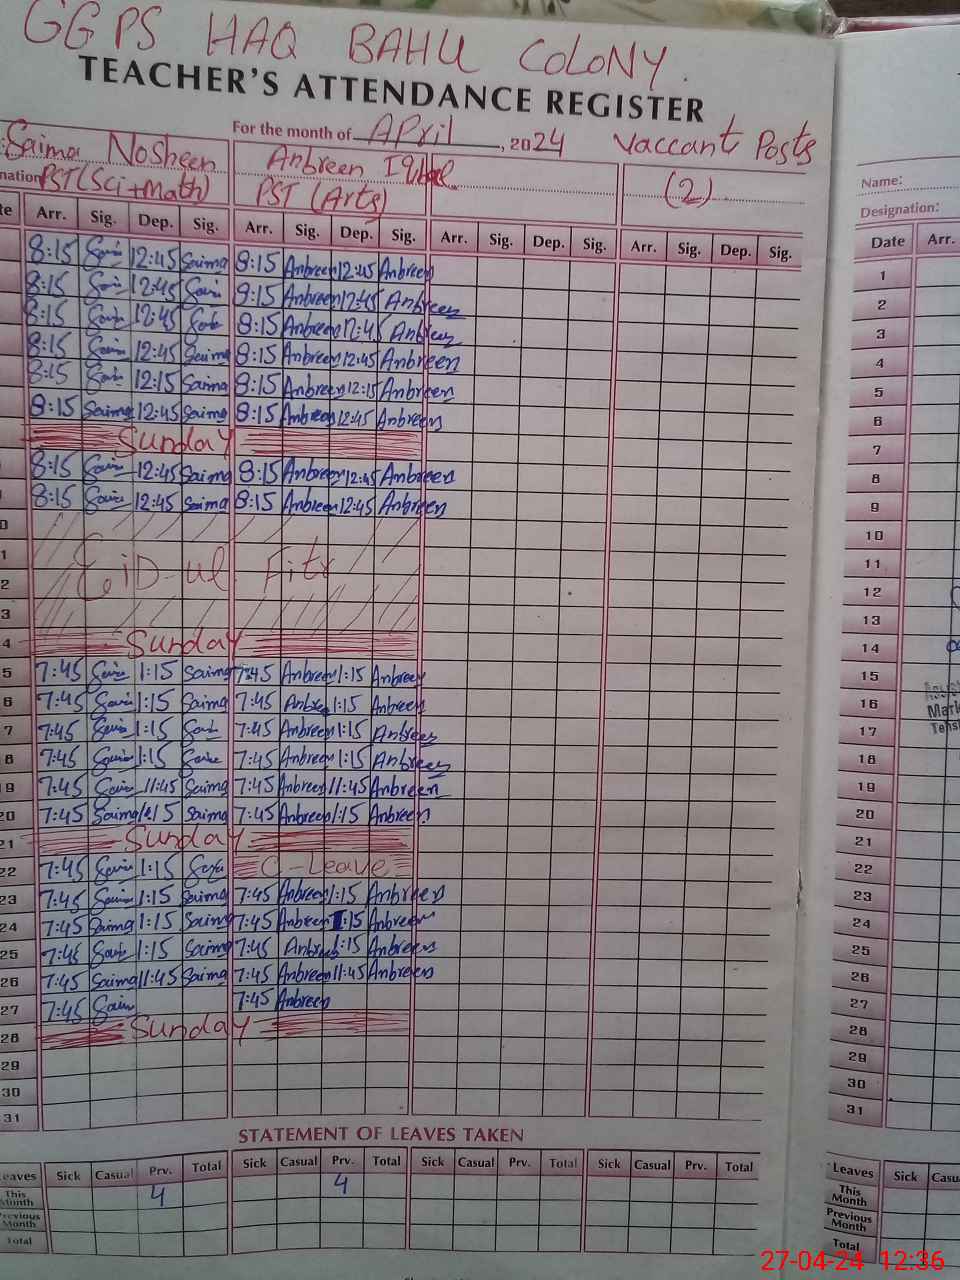 GGPS HAQ BAHU COLONY.
TEACHER'S ATTENDANCE REGISTER
For the month of April, 2024 Vaccant Posts
Saima Nosheen Anbreen Iqbal (2) Name:
PST(Sci+Math) PST (Arts) Designation:
Arr. Sig. Dep. Sig. Arr. Sig. Dep. Sig. Arr. Sig. Dep. Sig. Arr. Sig. Dep. Sig. Date Arr.
8:15 Saima 12:45 Saima 8:15 Anbreen 12:45 Anbreen 1
8:15 12:45 8:15 Anbreen 12:45 Anbreen 2
8:15 12:45 8:15 Anbreen 12:45 Anbreen 3
8:15 12:45 Saima 8:15 Anbreen 12:45 Anbreen 4
8:15 12:15 Saima 8:15 Anbreen 12:15 Anbreen 5
8:15 Saima 12:45 Saima 8:15 Anbreen 12:45 Anbreen 6
Sunday 7
8:15 12:45 Saima 8:15 Anbreen 12:45 Anbreen 8
8:15 12:45 Saima 8:15 Anbreen 12:45 Anbreen 9
10
EiD-ul Fitr 11
12
13
Sunday 14
7:45 1:15 Saima 7:45 Anbreen 1:15 Anbreen 15
7:45 1:15 Saima 7:45 Anbreen 1:15 Anbreen 16
7:45 1:15 7:45 Anbreen 1:15 Anbreen 17
7:45 1:15 7:45 Anbreen 1:15 Anbreen 18
7:45 11:45 Saima 7:45 Anbreen 11:45 Anbreen 19
20 7:45 Saima 1:15 Saima 7:45 Anbreen 1:15 Anbreen 20
21 Sunday 21
22 7:45 1:15 C-Leave 22
23 7:45 1:15 Saima 7:45 Anbreen 1:15 Anbreen 23
24 7:45 Saima 1:15 Saima 7:45 Anbreen 1:15 Anbreen 24
25 7:45 1:15 Saima 7:45 Anbreen 1:15 Anbreen 25
26 7:45 Saima 11:45 Saima 7:45 Anbreen 11:45 Anbreen 26
27 7:45 7:45 Anbreen 27
28 Sunday 28
29 29
30 30
31 31
STATEMENT OF LEAVES TAKEN
Leaves Sick Casual Prv. Total Sick Casual Prv. Total Sick Casual Prv. Total Sick Casual Prv. Total Leaves Sick
This Month 4 4 This Month
Previous Month Previous Month
Total Total
27-04-24 12:36